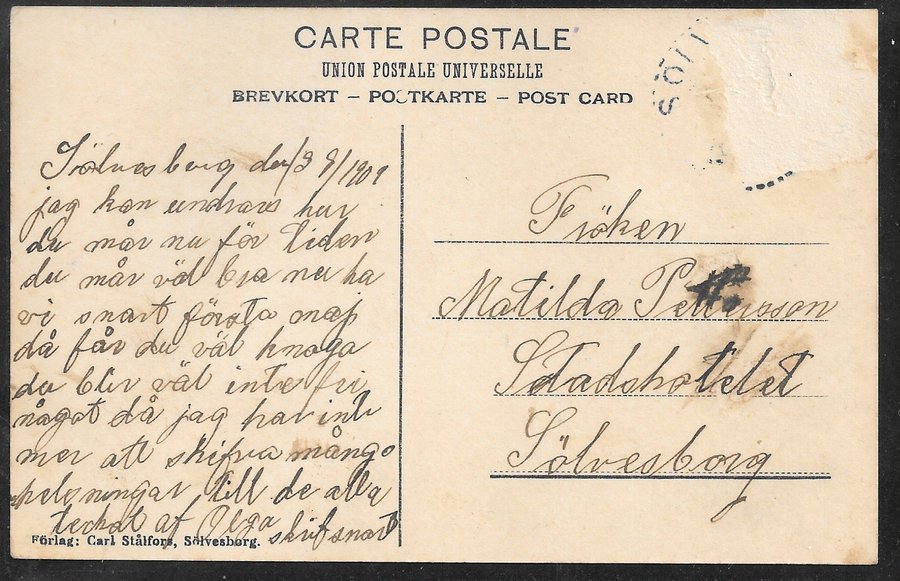 CARTE POSTALE
UNION POSTALE UNIVERSELLE
BREVKORT — POSTKARTE — POST CARD
SÖL
Sölvesborg den 1909
jag kan undras hur
du mår nu för tiden
du mår väl bra nu ha
vi snart första maj
då får du väl knoga
du blir väl inte fri
något då jag har inte
mer att skifva mångo
helsningar till de alla
tecknat af Olga skrif snart
Förlag: Carl Stålfors, Sölvesborg.
Fröken
Matilda Pettersson
Stadshotelet
Sölvesborg